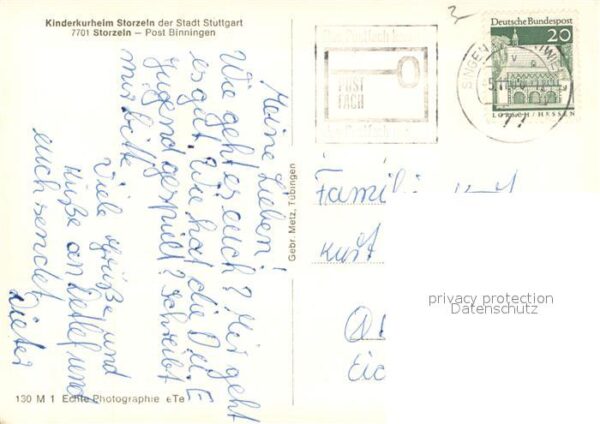 Kinderkurheim Storzeln der Stadt Stuttgart
7701 Storzeln – Post Binningen
Meine Lieben!
Wie geht es euch? Mir geht
es gut. Wie hat die D.J.E
Jugend gespielt? Schreibt
mir bitte
Viele Grüße und
Küße an Detlef und
euch sendet
Dieter
130 M 1 Echte Photographie eTe
Gebr. Metz, Tübingen
POST
FACH
Deutsche Bundespost
20
LORSCH/HESSEN
SINGEN
Familie
Kurt
privacy protection
Datenschutz
Eic